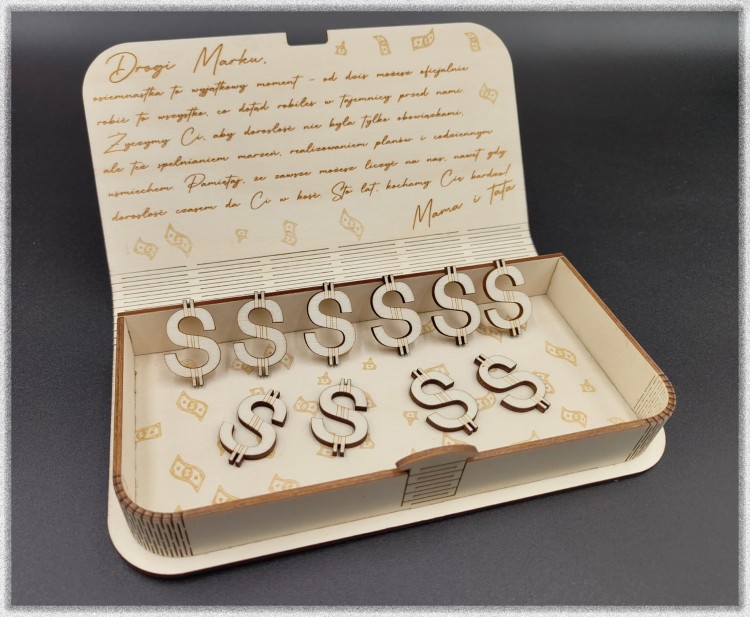 Drogi Marku,
osiemnastka to wyjątkowy moment - od dziś możesz oficjalnie
robić to wszystko, co dotąd robiłeś w tajemnicy przed nami.
Życzymy Ci, aby dorosłość nie była tylko obowiązkami,
ale też spełnianiem marzeń, realizowaniem planów i codziennym
uśmiechem. Pamiętaj, że zawsze możesz liczyć na nas, nawet gdy
dorosłość czasem da Ci w kość. Sto lat, kochamy Cię bardzo!
Mama i tata